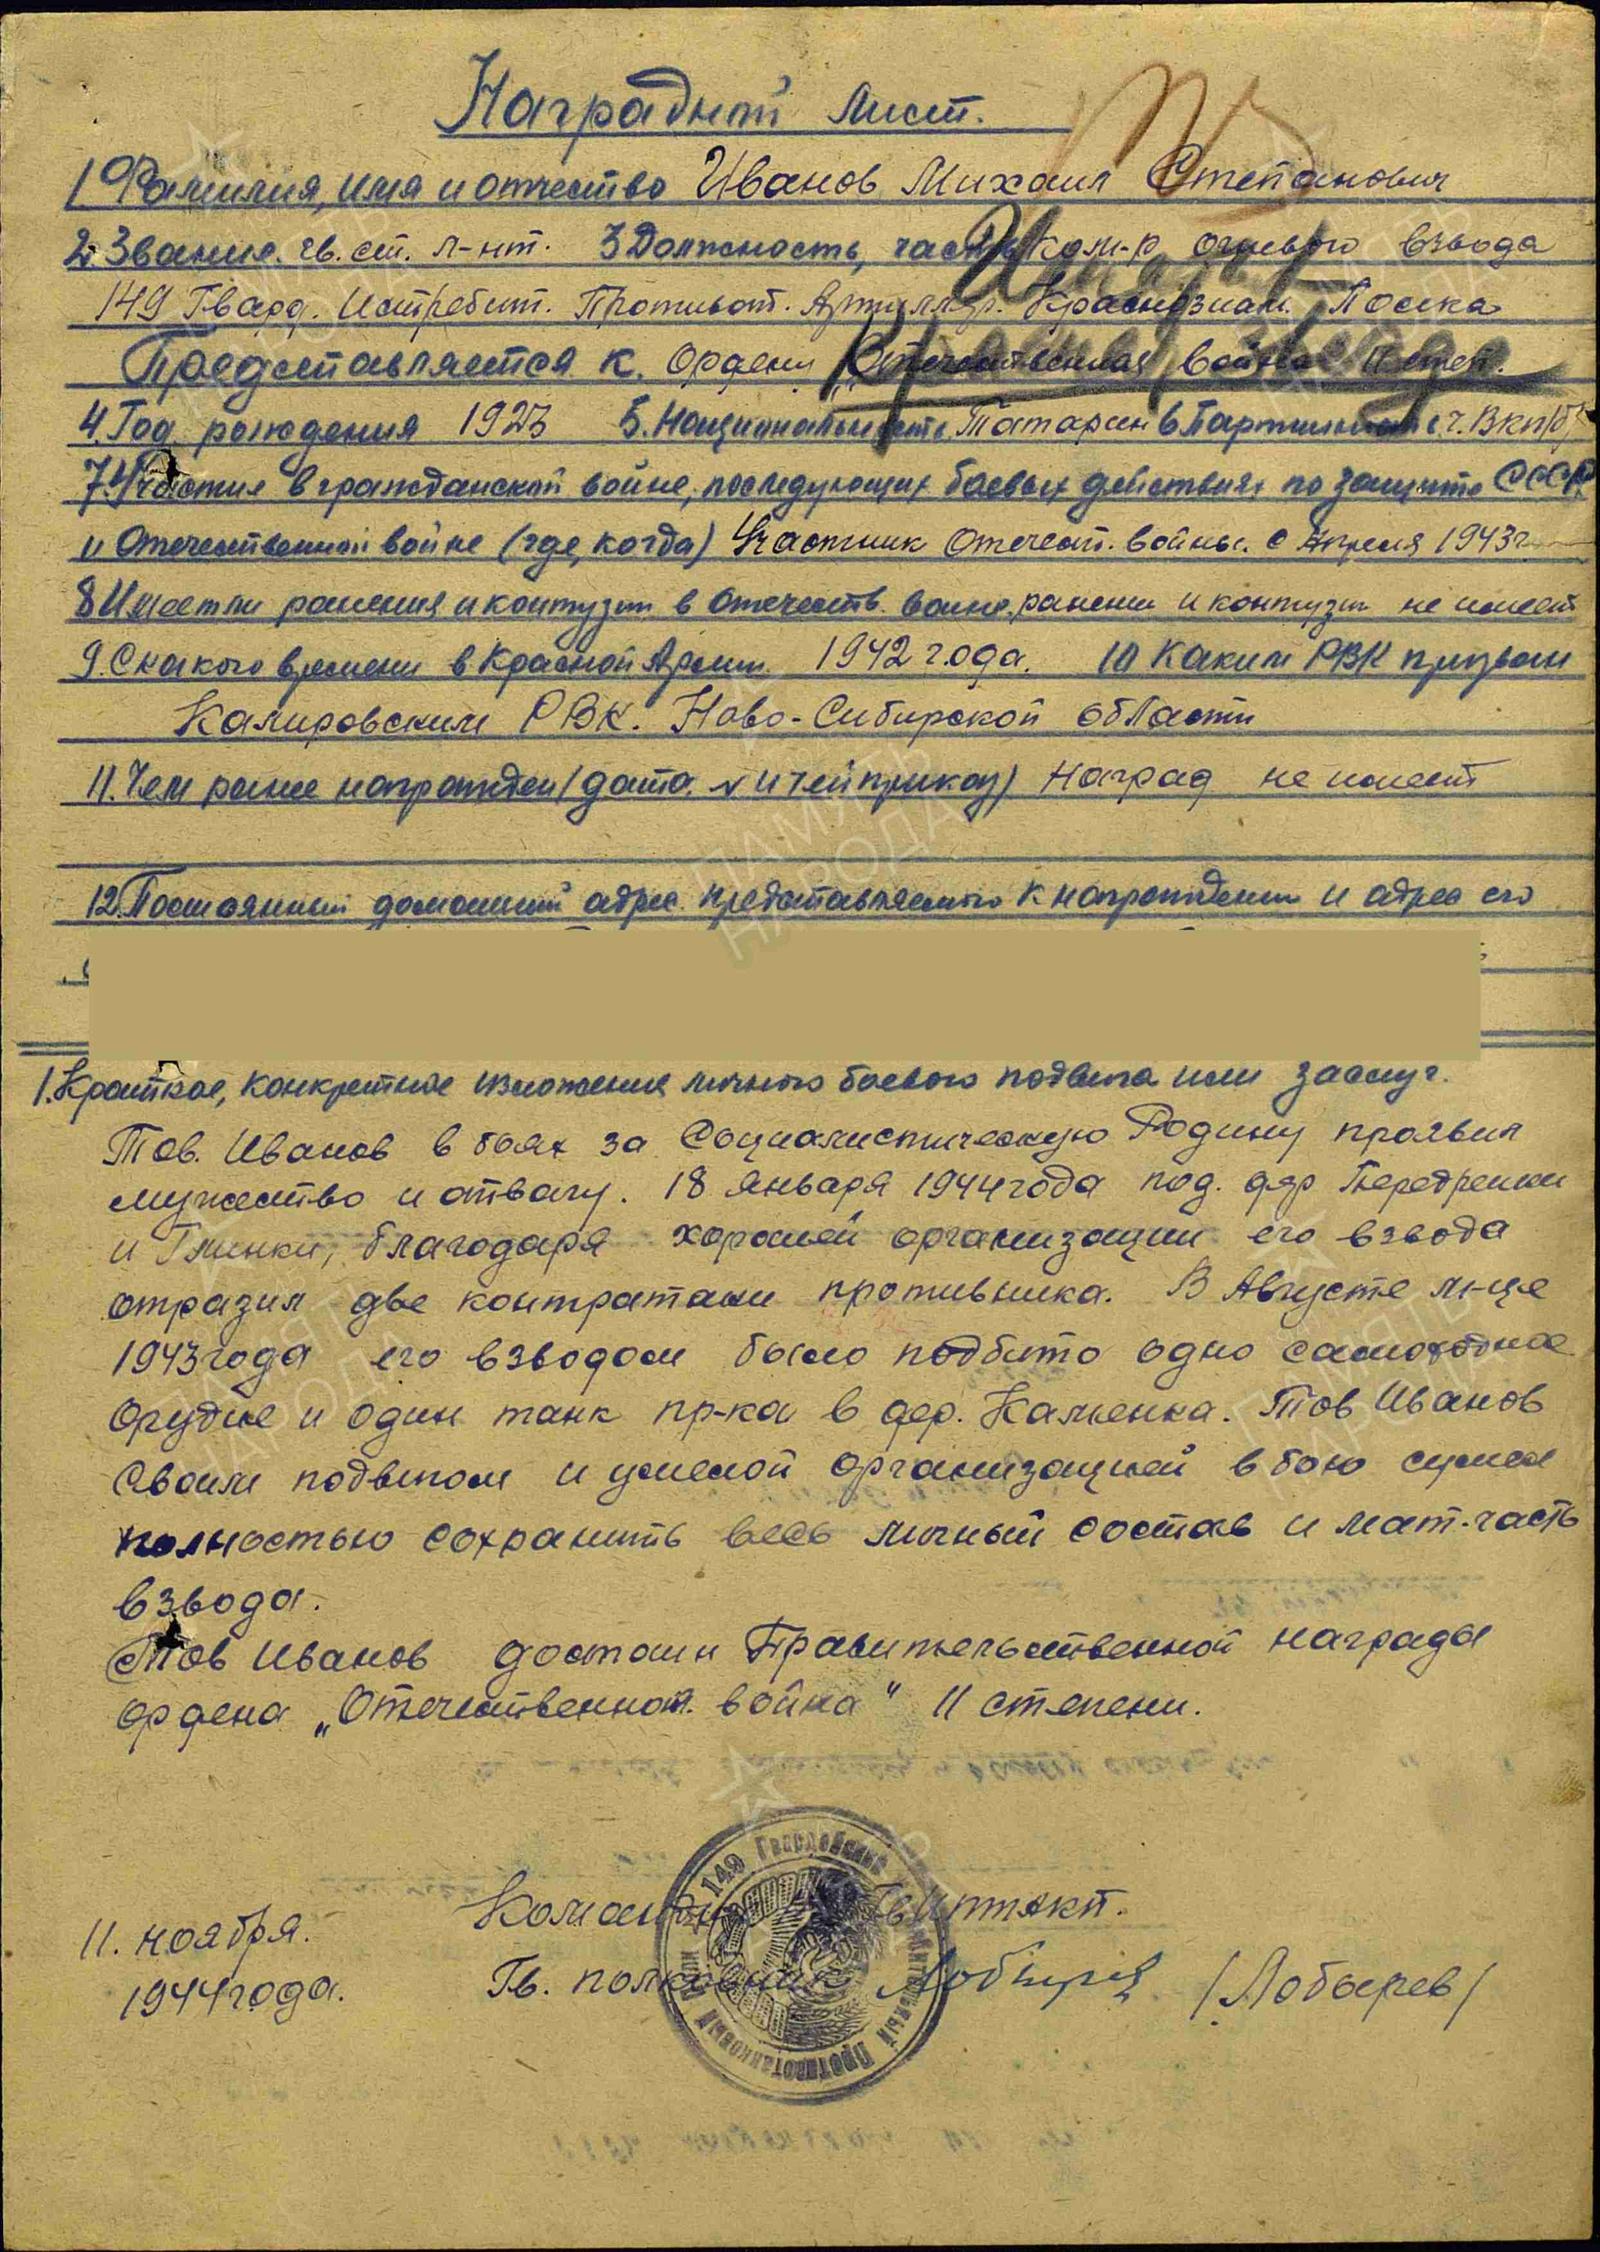 Наградной лист.
1. Фамилия, имя и отчество Иванов Михаил Степанович
2. Звание гв. ст. л-нт. 3 Должность, часть Ком-р огневого взвода
149 Гвард. Истребит. Противот. Артиллер. Краснознам. Полка
Представляется к ордену "Отечественная война" II степ.
Красная Звезда
4. Год рождения 1923 5. Национальность Татарин 6 Партийность ч. ВКП/б/
7. Участие в гражданской войне, последующих боевых действиях по защите СССР
и Отечественной войне (где, когда) Участник Отечест. войны с Апреля 1943 г.
8 Имеет ли ранения и контузии в Отечеств. войне ранений и контузий не имеет
9. С какого времени в Красной Армии 1942 года. 10 Каким РВК призван
РВК. Ново-Сибирской области
11. Чем ранее награжден (дата и чей приказ) Наград не имеет
12. Постоянный домашний адрес представляемого к награждению и адрес его
1. Краткое, конкретное изложение личного боевого подвига или заслуг.
Тов. Иванов в боях за Социалистическую Родину проявил
мужество и отвагу. 18 января 1944 года под. дер
и Глинки, благодаря хорошей организации его взвода
отразил две контратаки противника. В Августе м-це
1943 года его взводом было подбито одно самоходное
орудие и один танк пр-ка в дер. Каменка. Тов Иванов
своим подвигом и умелой организацией в бою сумел
полностью сохранить весь личный состав и мат.часть
взвода.
Тов Иванов достоин Правительственной награды
ордена „Отечественной война" II степени.
11. ноября.
1944 года.
Командир 149 ГвИПТАКП.
Гв. полковник Лобырев /Лобырев/
149 Гвардейский Истребительный Противотанковый
ПАМЯТЬ НАРОДА